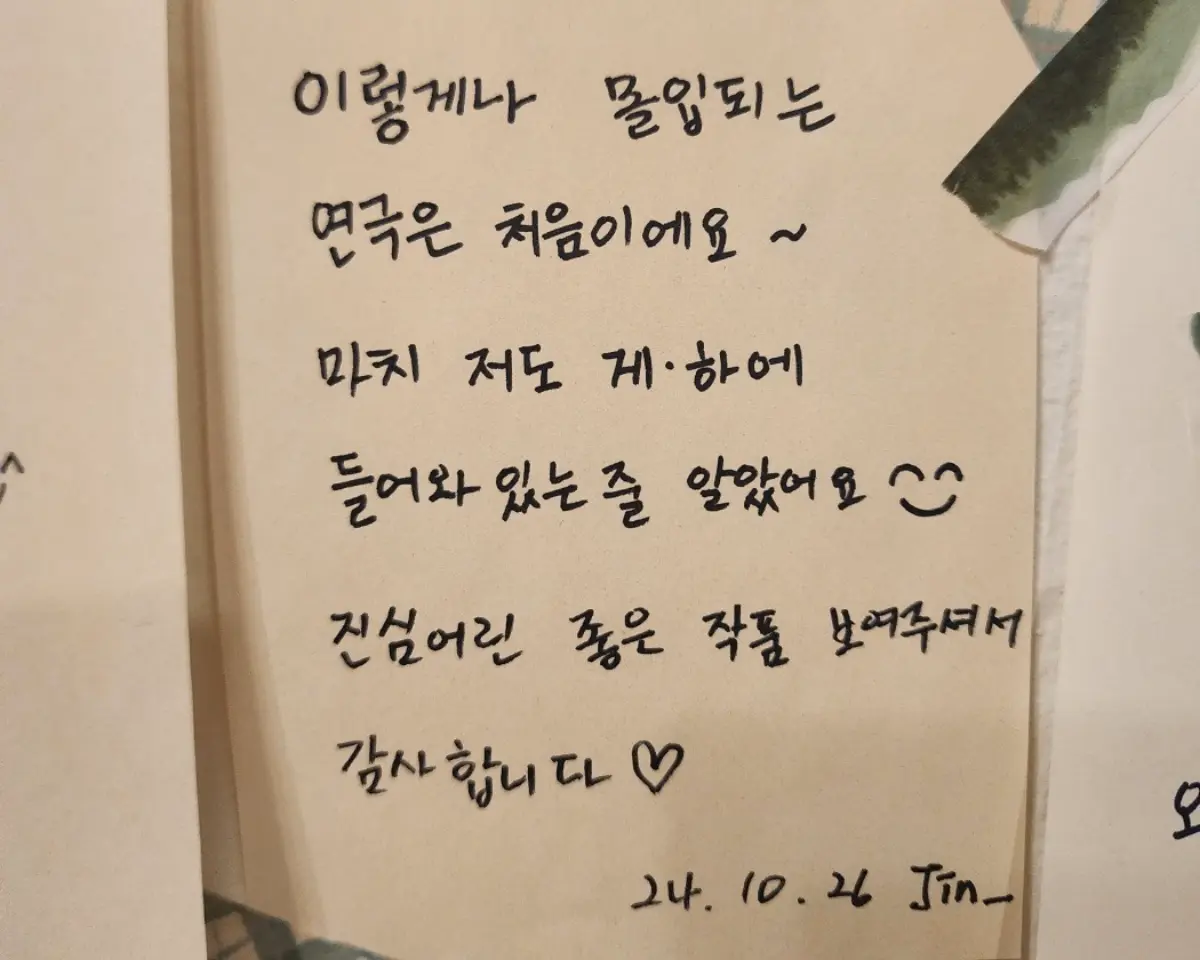 이렇게나 몰입되는
연극은 처음이에요 ~
마치 저도 게·하에
들어와 있는 줄 알았어요
진심어린 좋은 작품 보여주셔서
감사합니다 ♡
24. 10. 26 Jin_